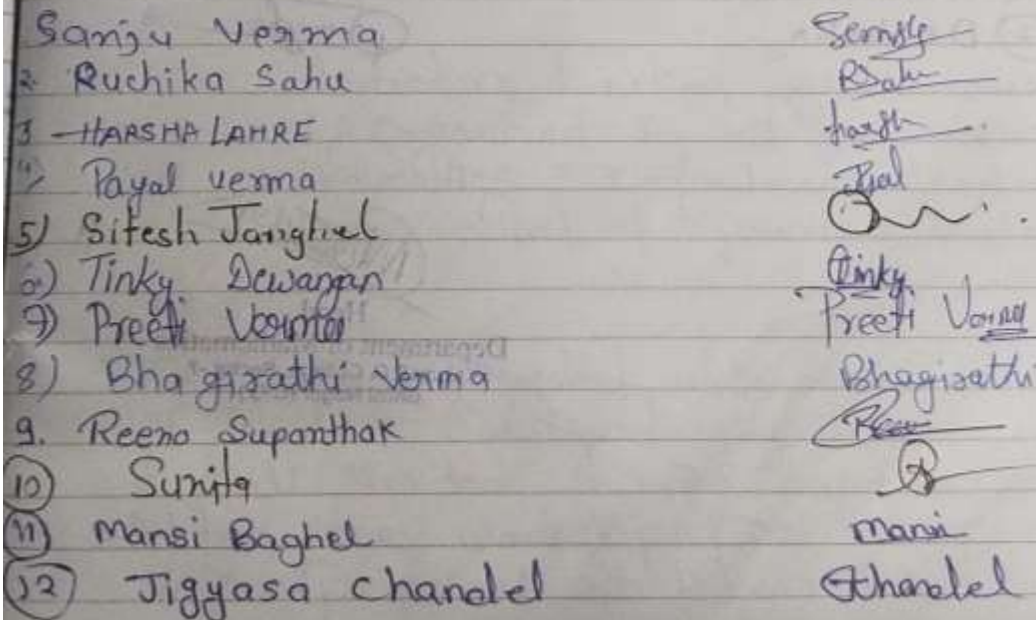 Sanju Verma
2. Ruchika Sahu RSahu
3 HARSHA LAHRE harsh
4) Payal verma
5) Sitesh Janghel
6) Tinky Dewangan Tinky
7) Preeti Verma Preeti Verma
8) Bhagirathi Verma Bhagirathi
9. Reena Supanthak Reen
10) Sunita
11) Mansi Baghel Mansi
12) Jigyasa Chandel Chandel